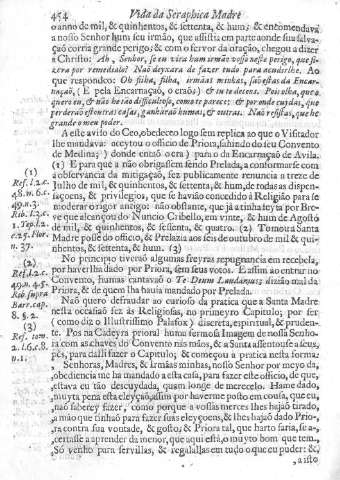 454 Vida da Seraphica Madre
o anno de mil, & quinhentos, & setenta, & hum; & encomendava
a nosso Senhor hum seu irmão, que assistia em parte aonde sua salva-
ção corria grande perigo; & com o fervor da oração, chegou a dizer
a Christo: Ah, Senhor, se eu vira hum irmão vosso nesse perigo, que fi-
zera por remedialo? Não deyxara de fazer tudo para acudirlhe. Ao
que respondeo: Oh filha, filha, irmãas minhas, são estas da Encar-
nação, ( E pela Encarnação, o eraõs) & tu te detens. Pois olha, que o
quero eu, & não he tão difficultoso, como te parece; & por onde cuydas, que
perderão estoutras casas, ganharão humas, & outras. Não resistas, que he
grande o meu poder.
A este aviso do Ceo, obedeceo logo sem replica ao que o Visitador
lhe mandava: aceytou o officio de Priora, sahindo do seu Convento
de Medina; ) donde entaõ era ) para o da Encarnação de Avila.
(1) E para que a não obrigassem sendo Prelada, a conformarse com
a observancia da mitigação, fez publicamente renuncia a treze de
Julho de mil, & quinhentos, & setenta, & hum, de todas as dispen-
saçoens, & privilegios, que se havião concedido à Religião para se
moderar o rigor antigo: não obstante, que já tinha feyta por Bre-
ve que alcançou do Nuncio Cribello, em vinte, & hum de Agosto
de mil, & quinhentos, & sessenta, & quatro. (2) Tomou a Santa
Madre posse do officio, & Prelazia aos seis de outubro de mil & qui-
nhentos, & setenta, & hum. (3)
No principio tiverão algumas freyras repugnancia em recebela,
por haver lha dado por Priora, sem seus votos. E assim ao entrar no
Convento, humas cantavaõ o Te Deum Laudamus; diziaõ mal da
Priora, & de quem lha havia mandado por Prelada.
Naõ quero defraudar ao curioso da pratica que a Santa Madre
nesta occasiaõ fez às Religiosas, no primeyro Capitulo; por ser
( como diz o Illustrissimo Palafox ) discreta, espiritual, & pruden-
te. Pos na Cadeyra prioral huma fermosa Imagem de nossa Senho-
ra com as chaves do Convento nas mãos, & a Santa assentouse a seus,
pès, para dalli fazer o Capitulo; & começou a pratica nesta forma:
, Senhoras, Madres, & Irmãas minhas, nosso Senhor por meyo da
,obediencia me ha mandado a esta casa, para fazer este officio, de que,
,estava eu tão descuydada, quam longe de merecelo. Hame dado,
,muyta pena esta eleyção, assim por haverme posto em cousa, que eu,
,naõ saberey fazer, como porque a vossas merces lhes hajaõ tirado,
,a mão que tinhaõ para fazer suas eleyçoens, & lhes hajaõ dado Prio-,
,ra contra sua vontade, & gosto; & Priora tal, que harto faria, se a-,
,certasse a aprender da menor, que aqui està, o muyto bom que tem.,
,Só venho para servillas, & regalallas em tudo o que eu puder: &,
,a isto
(1)
Ref. l. 2. c.
48. n. 6. c.
49. n. 3.
Rib. l. 2. c.
1. Yep. l. 2.
c. 25. Flor.
n. 37.
(2)
Ref. l. 2. c.
49. n. 4. 5.
Rib. supra
Barr. cap.
8. §. 2.
(3)
Ref. tom.
2. l. 6. c. 8.
n. 1.